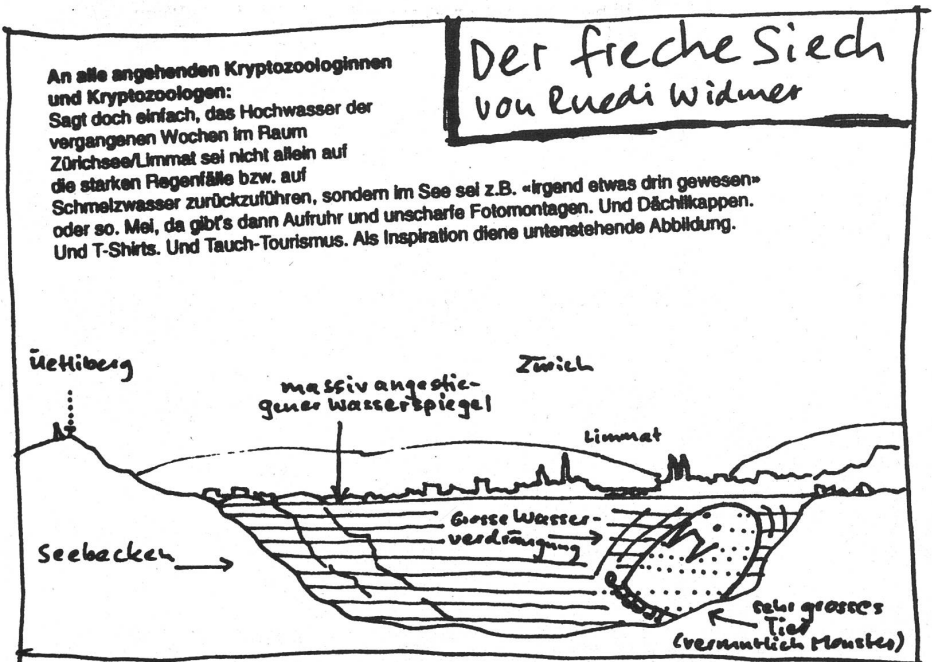 Der freche Siech
von Ruedi Widmer
An alle angehenden Kryptozoologinnen
und Kryptozoologen:
Sagt doch einfach, das Hochwasser der
vergangenen Wochen im Raum
Zürichsee/Limmat sei nicht allein auf
die starken Regenfälle bzw. auf
Schmelzwasser zurückzuführen, sondern im See sei z.B. «irgend etwas drin gewesen»
oder so. Mei, da gibt's dann Aufruhr und unscharfe Fotomontagen. Und Dächlikappen.
Und T-Shirts. Und Tauch-Tourismus. Als Inspiration diene untenstehende Abbildung.
Üetliberg
massiv angestie-
gener Wasserspiegel
Zürich
Limmat
Grosse Wasser-
verdrängung
Seebecken
sehr grosses
Tier
(vermutlich Monster)